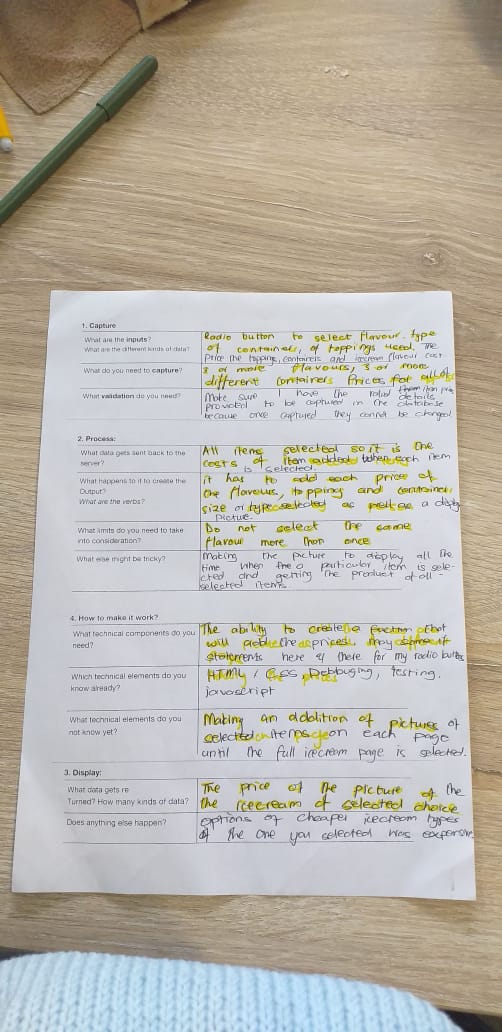 1. Capture
What are the inputs?
What are the different kinds of data?
Radio button to select flavour, type
of containers, of toppings used. The
Price the topping, containers and icecream flavour cost
What do you need to capture?
3 or more flavours, 3 or more
different containers Prices for all of
What validation do you need?
Make sure have the valid
provided to be captured in the database
because once captured they cannot be changed
2. Process:
What data gets sent back to the
server?
All items selected so it is the
costs of item added when each item
is selected.
What happens to it to create the
Output?
What are the verbs?
it has to add each price of
the flavours, topping and container,
size or type selected as well as a display
picture.
What limits do you need to take
into consideration?
Do not select the same
flavour more than once
What else might be tricky?
Making the picture to display all the
time when the a particular item is sele-
cted and getting the product of all -
selected items.
4. How to make it work?
What technical components do you
need?
The ability to create a that
will add the prices. May
statements here & there for my radio buttons
Which technical elements do you
know already?
HTML / Css Debbuging, testing.
javascript
What technical elements do you
not know yet?
Making an addition of pictures of
selected items on each page
until the full icecream page is selected.
3. Display:
What data gets re
Turned? How many kinds of data?
The price of the picture of the
the icecream of selected choice
Does anything else happen?
options of cheaper icecream types
if the one you selected was expensive